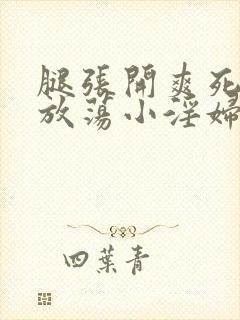 腿張開爽死
放蕩小淫婦
四葉青